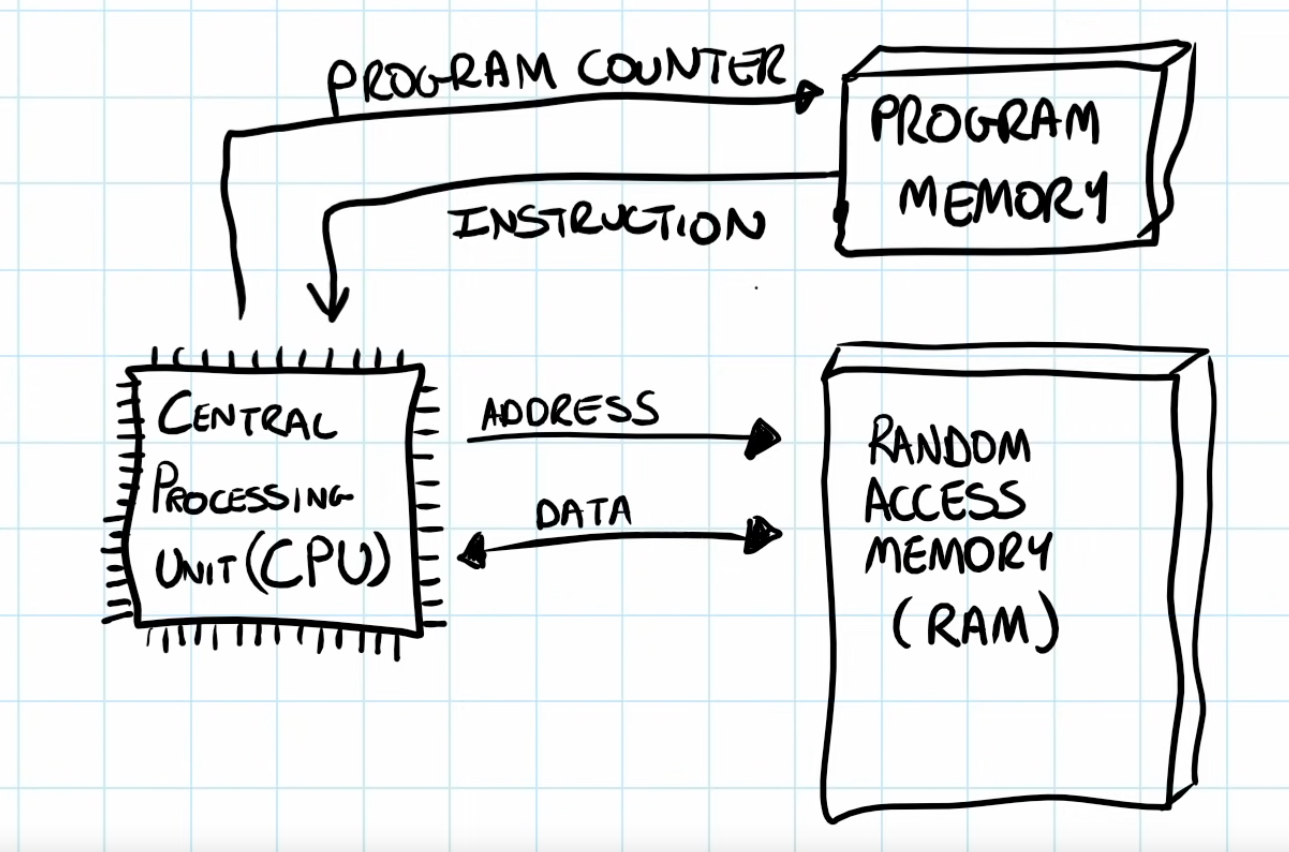 PROGRAM COUNTER
PROGRAM
MEMORY
INSTRUCTION
CENTRAL
PROCESSING
UNIT (CPU)
ADDRESS
DATA
RANDOM
ACCESS
MEMORY
(RAM)